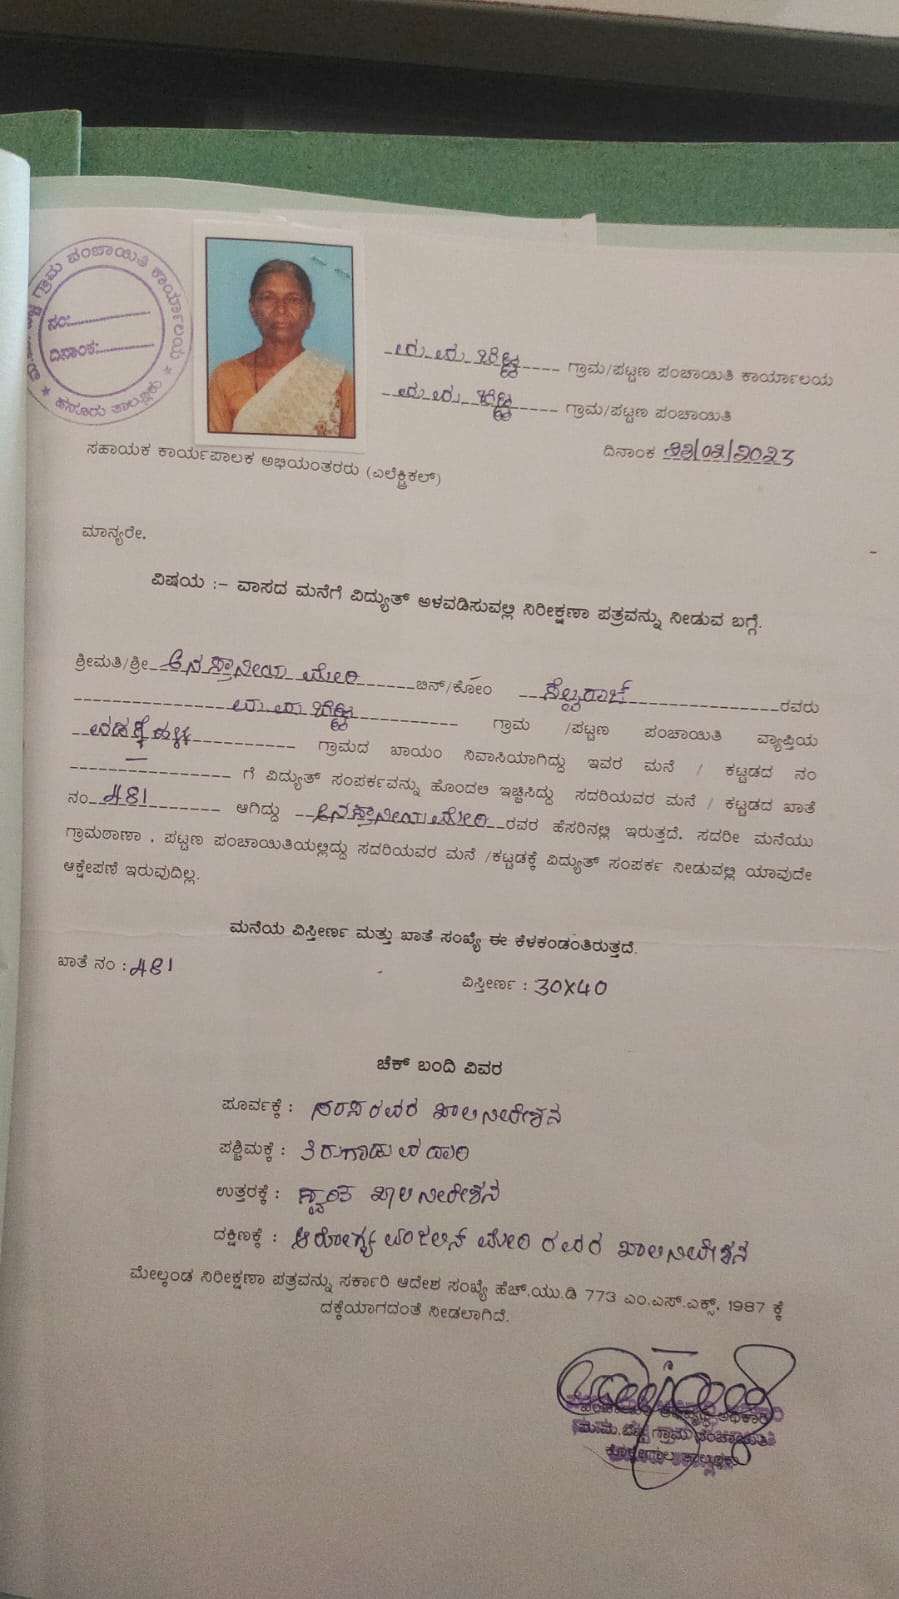 ಗ್ರಾಮ ಪಂಚಾಯಿತಿ ಕಾರ್ಯಾಲಯ
ನಂ:
ದಿನಾಂಕ:
ಹನೂರು ತಾಲ್ಲೂಕು
ಮ ಮ ಬೆಟ್ಟ ಗ್ರಾಮ/ಪಟ್ಟಣ ಪಂಚಾಯಿತಿ ಕಾರ್ಯಾಲಯ
ಮ ಮ ಬೆಟ್ಟ ಗ್ರಾಮ/ಪಟ್ಟಣ ಪಂಚಾಯಿತಿ
ದಿನಾಂಕ /2023
ಸಹಾಯಕ ಕಾರ್ಯಪಾಲಕ ಅಭಿಯಂತರರು (ಎಲೆಕ್ಟ್ರಿಕಲ್)
ಮಾನ್ಯರೇ,
ವಿಷಯ :- ವಾಸದ ಮನೆಗೆ ವಿದ್ಯುತ್ ಅಳವಡಿಸುವಲ್ಲಿ ನಿರೀಕ್ಷಣಾ ಪತ್ರವನ್ನು ನೀಡುವ ಬಗ್ಗೆ.
ಶ್ರೀಮತಿ/ಶ್ರೀ ಮೇರಿ ಬಿನ್/ಕೋಂ ಸೆಲ್ವರಾಜ್ ರವರು
ಮ ಮ ಬೆಟ್ಟ ಗ್ರಾಮ /ಪಟ್ಟಣ ಪಂಚಾಯಿತಿ ವ್ಯಾಪ್ತಿಯ
ವಡಕೆಹಳ್ಳ ಗ್ರಾಮದ ಖಾಯಂ ನಿವಾಸಿಯಾಗಿದ್ದು ಇವರ ಮನೆ / ಕಟ್ಟಡದ ನಂ
ಗೆ ವಿದ್ಯುತ್ ಸಂಪರ್ಕವನ್ನು ಹೊಂದಲಿ ಇಚ್ಚಿಸಿದ್ದು ಸದರಿಯವರ ಮನೆ / ಕಟ್ಟಡದ ಖಾತೆ
ನಂ 481 ಆಗಿದ್ದು ಮೇರಿ ರವರ ಹೆಸರಿನಲ್ಲಿ ಇರುತ್ತದೆ. ಸದರೀ ಮನೆಯು
ಗ್ರಾಮಠಾಣಾ , ಪಟ್ಟಣ ಪಂಚಾಯಿತಿಯಲ್ಲಿದ್ದು ಸದರಿಯವರ ಮನೆ /ಕಟ್ಟಡಕ್ಕೆ ವಿದ್ಯುತ್ ಸಂಪರ್ಕ ನೀಡುವಲ್ಲಿ ಯಾವುದೇ
ಆಕ್ಷೇಪಣೆ ಇರುವುದಿಲ್ಲ.
ಮನೆಯ ವಿಸ್ತೀರ್ಣ ಮತ್ತು ಖಾತೆ ಸಂಖ್ಯೆ ಈ ಕೆಳಕಂಡಂತಿರುತ್ತದೆ.
ಖಾತೆ ನಂ : 481
ವಿಸ್ತೀರ್ಣ : 30X40
ಚೆಕ್ ಬಂದಿ ವಿವರ
ಪೂರ್ವಕ್ಕೆ : ರವರ ಖಾಲಿ ನಿವೇಶನ
ಪಶ್ಚಿಮಕ್ಕೆ : ತಿರುಗಾಡುವ ದಾರಿ
ಉತ್ತರಕ್ಕೆ : ಸ್ವಂತ ಖಾಲಿ ನಿವೇಶನ
ದಕ್ಷಿಣಕ್ಕೆ : ಆರೋಗ್ಯ ಮೇರಿ ರವರ ಖಾಲಿ ನಿವೇಶನ
ಮೇಲ್ಕಂಡ ನಿರೀಕ್ಷಣಾ ಪತ್ರವನ್ನು ಸರ್ಕಾರಿ ಆದೇಶ ಸಂಖ್ಯೆ ಹೆಚ್.ಯು.ಡಿ 773 ಎಂ.ಎಸ್.ಎಕ್ಸ್. 1987 ಕ್ಕೆ
ದಕ್ಕೆಯಾಗದಂತೆ ನೀಡಲಾಗಿದೆ.
ಮ.ಮ.ಬೆಟ್ಟ ಗ್ರಾಮ ಪಂಚಾಯಿತಿ
ಕೊಳ್ಳೇಗಾಲ ತಾಲ್ಲೂಕು